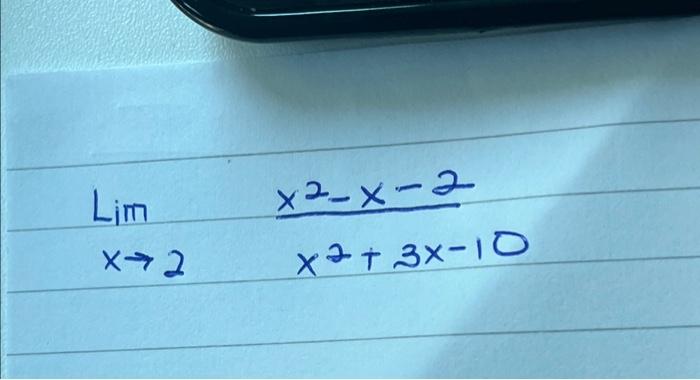 Lim x²-x-2
x→2 x²+3x-10